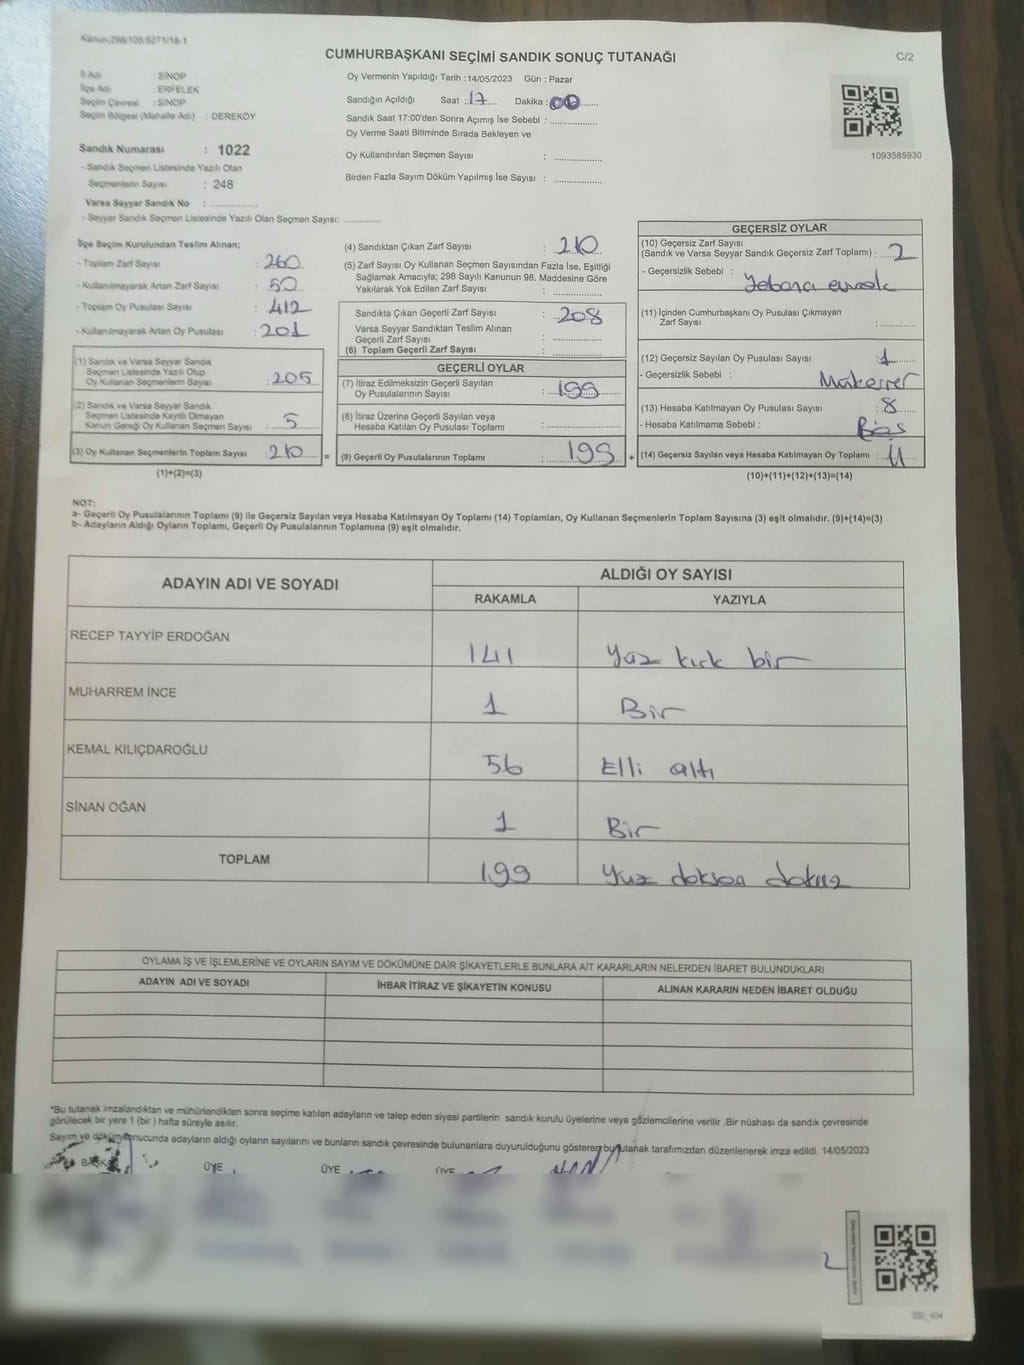 Kanun:298/103;6271/18-1
CUMHURBAŞKANI SEÇİMİ SANDIK SONUÇ TUTANAĞI
C/2
İl Adı : SİNOP
İlçe Adı : ERFELEK
Seçim Çevresi : SİNOP
Seçim Bölgesi (Mahalle Adı) : DEREKÖY
Oy Vermenin Yapıldığı Tarih : 14/05/2023 Gün : Pazar
Sandığın Açıldığı Saat : 17 Dakika : 00
Sandık Saat 17:00'den Sonra Açımış İse Sebebi :
Oy Verme Saati Bitiminde Sırada Bekleyen ve
Oy Kullandırılan Seçmen Sayısı :
Birden Fazla Sayım Döküm Yapılmış İse Sayısı :
1093585930
Sandık Numarası : 1022
- Sandık Seçmen Listesinde Yazılı Olan
Seçmenlerin Sayısı : 248
Varsa Seyyar Sandık No :
- Seyyar Sandık Seçmen Listesinde Yazılı Olan Seçmen Sayısı:
İlçe Seçim Kurulundan Teslim Alınan;
- Toplam Zarf Sayısı : 260
- Kullanılmayarak Artan Zarf Sayısı : 50
- Toplam Oy Pusulası Sayısı : 412
- Kullanılmayarak Artan Oy Pusulası : 201
(1) Sandık ve Varsa Seyyar Sandık
Seçmen Listesinde Yazılı Olup
Oy Kullanan Seçmenlerin Sayısı : 205
(2) Sandık ve Varsa Seyyar Sandık
Seçmen Listesinde Kayıtlı Olmayan
Kanun Gereği Oy Kullanan Seçmen Sayısı : 5
(3) Oy Kullanan Seçmenlerin Toplam Sayısı : 210 =
(1)+(2)=(3)
(4) Sandıktan Çıkan Zarf Sayısı : 210
(5) Zarf Sayısı Oy Kullanan Seçmen Sayısından Fazla İse, Eşitliği
Sağlamak Amacıyla; 298 Sayılı Kanunun 98. Maddesine Göre
Yakılarak Yok Edilen Zarf Sayısı :
Sandıkta Çıkan Geçerli Zarf Sayısı : 208
Varsa Seyyar Sandıktan Teslim Alınan
Geçerli Zarf Sayısı :
(6) Toplam Geçerli Zarf Sayısı :
GEÇERLİ OYLAR
(7) İtiraz Edilmeksizin Geçerli Sayılan
Oy Pusulalarının Sayısı : 199
(8) İtiraz Üzerine Geçerli Sayılan veya
Hesaba Katılan Oy Pusulası Toplamı :
(9) Geçerli Oy Pusulalarının Toplamı : 199 +
GEÇERSİZ OYLAR
(10) Geçersiz Zarf Sayısı
(Sandık ve Varsa Seyyar Sandık Geçersiz Zarf Toplamı) : 2
- Geçersizlik Sebebi : Yabancı evrak
(11) İçinden Cumhurbaşkanı Oy Pusulası Çıkmayan
Zarf Sayısı :
(12) Geçersiz Sayılan Oy Pusulası Sayısı : 1
- Geçersizlik Sebebi : Mükerrer
(13) Hesaba Katılmayan Oy Pusulası Sayısı : 8
- Hesaba Katılmama Sebebi : Boş
(14) Geçersiz Sayılan veya Hesaba Katılmayan Oy Toplamı : 11
(10)+(11)+(12)+(13)=(14)
NOT:
a- Geçerli Oy Pusulalarının Toplamı (9) ile Geçersiz Sayılan veya Hesaba Katılmayan Oy Toplamı (14) Toplamları, Oy Kullanan Seçmenlerin Toplam Sayısına (3) eşit olmalıdır. (9)+(14)=(3)
b- Adayların Aldığı Oyların Toplamı, Geçerli Oy Pusulalarının Toplamına (9) eşit olmalıdır.
ADAYIN ADI VE SOYADI
ALDIĞI OY SAYISI
RAKAMLA YAZIYLA
RECEP TAYYİP ERDOĞAN 141 Yüz kırk bir
MUHARREM İNCE 1 Bir
KEMAL KILIÇDAROĞLU 56 Elli altı
SİNAN OĞAN 1 Bir
TOPLAM 199 Yüz doksan dokuz
OYLAMA İŞ VE İŞLEMLERİNE VE OYLARIN SAYIM VE DÖKÜMÜNE DAİR ŞİKAYETLERLE BUNLARA AİT KARARLARIN NELERDEN İBARET BULUNDUKLARI
ADAYIN ADI VE SOYADI İHBAR İTİRAZ VE ŞİKAYETİN KONUSU ALINAN KARARIN NEDEN İBARET OLDUĞU
*Bu tutanak imzalandıktan ve mühürlendikten sonra seçime katılan adayların ve talep eden siyasi partilerin sandık kurulu üyelerine veya gözlemcilerine verilir .Bir nüshası da sandık çevresinde
görülecek bir yere 1 (bir ) hafta süreyle asılır.
Sayım ve döküm sonucunda adayların aldığı oyların sayılarını ve bunların sandık çevresinde bulunanlara duyurulduğunu gösteren bu tutanak tarafımızdan düzenlenerek imza edildi. 14/05/2023
ÜYE ÜYE ÜYE